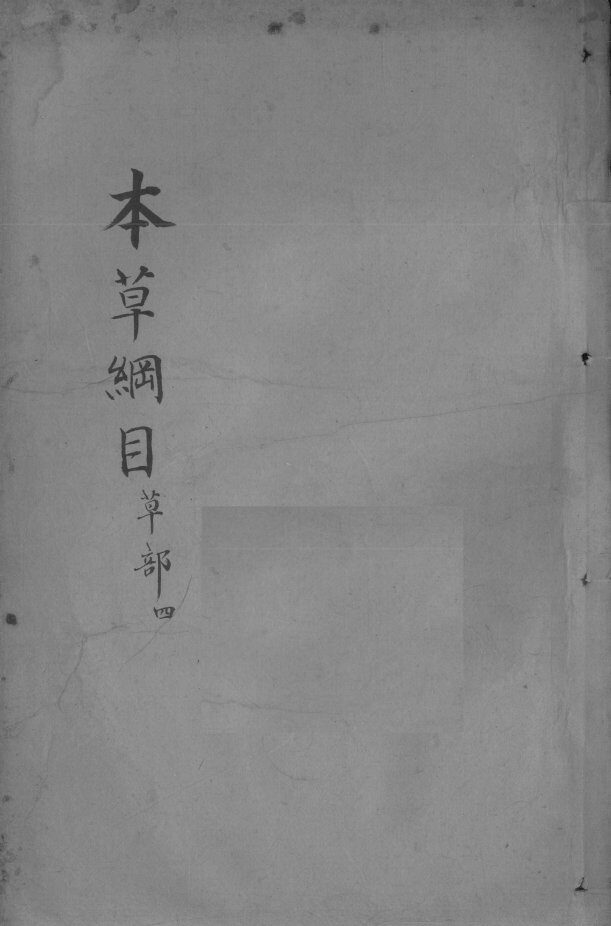 本草綱目草部四